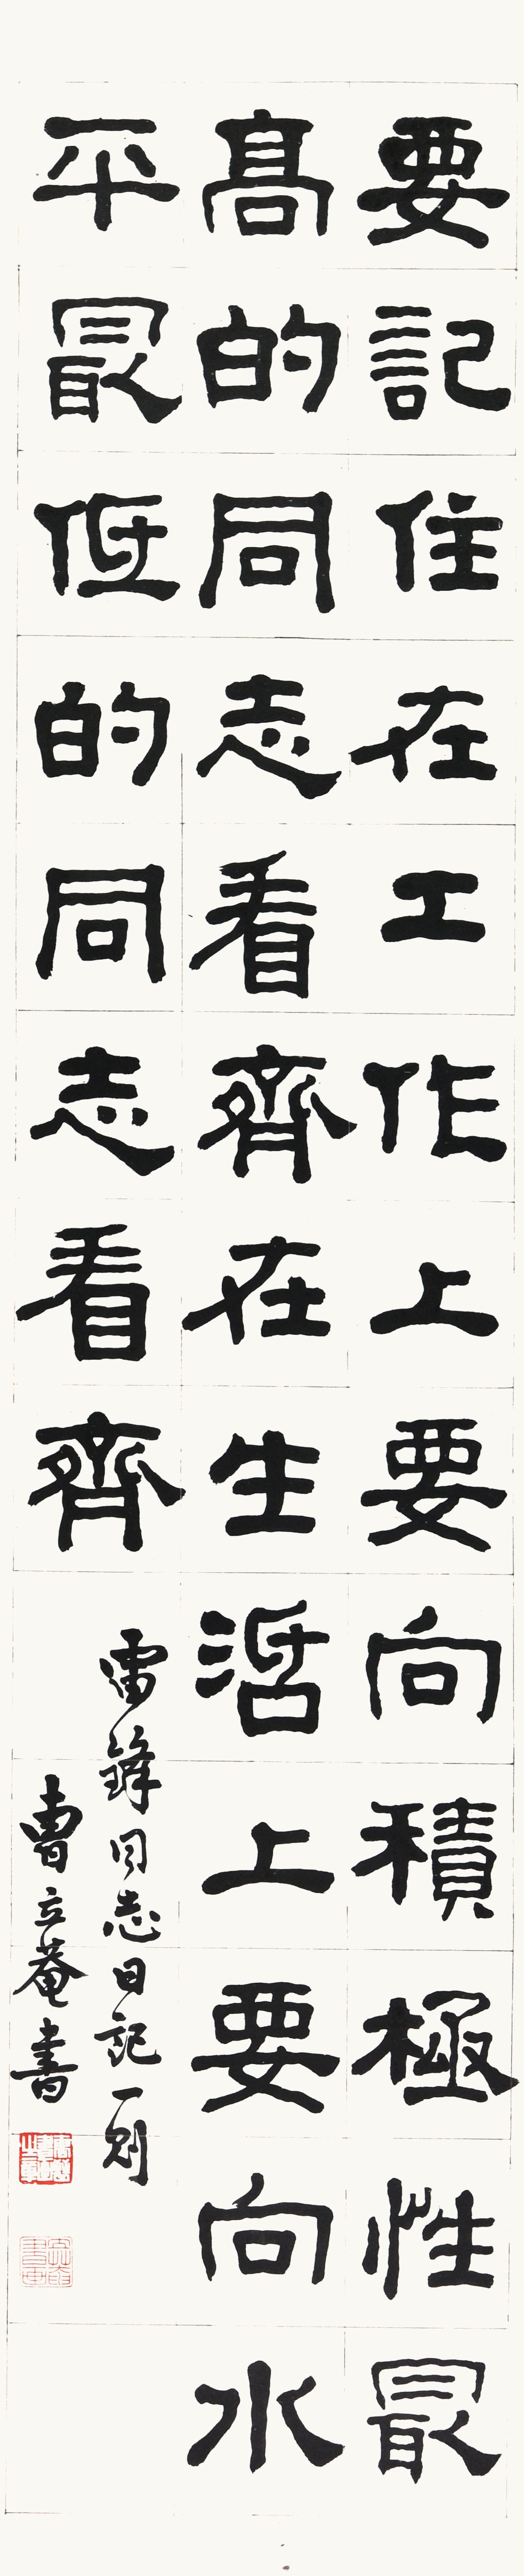 要記住在工作上要向積極性最
高的同志看齊在生活上要向水
平最低的同志看齊
雷鋒同志日記一則
曹立菴書